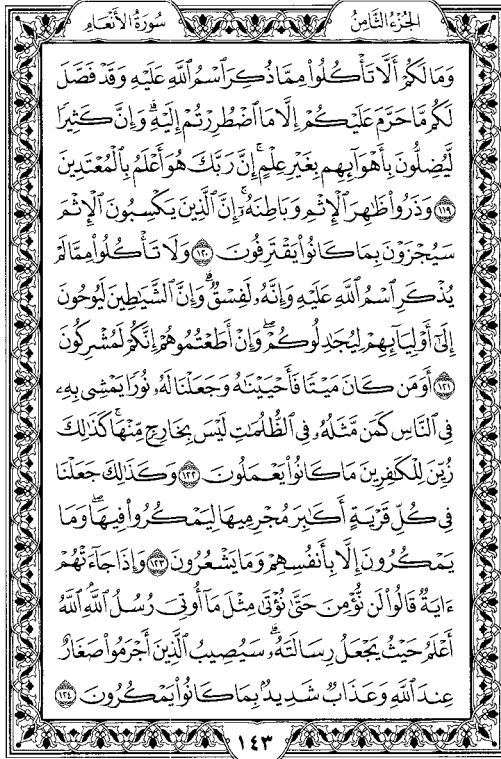 سُورَةُ الأَنْعَامِ
الجُزْءُ الثَّامِنُ
وَمَا لَكُمْ أَلَّا تَأْكُلُوا۟ مِمَّا ذُكِرَ ٱسْمُ ٱللَّهِ عَلَيْهِ وَقَدْ فَصَّلَ
لَكُم مَّا حَرَّمَ عَلَيْكُمْ إِلَّا مَا ٱضْطُرِرْتُمْ إِلَيْهِ ۗ وَإِنَّ كَثِيرًا
لَّيُضِلُّونَ بِأَهْوَآئِهِم بِغَيْرِ عِلْمٍ ۗ إِنَّ رَبَّكَ هُوَ أَعْلَمُ بِٱلْمُعْتَدِينَ
١١٩ وَذَرُوا۟ ظَٰهِرَ ٱلْإِثْمِ وَبَاطِنَهُۥٓ ۚ إِنَّ ٱلَّذِينَ يَكْسِبُونَ ٱلْإِثْمَ
سَيُجْزَوْنَ بِمَا كَانُوا۟ يَقْتَرِفُونَ ١٢٠ وَلَا تَأْكُلُوا۟ مِمَّا لَمْ
يُذْكَرِ ٱسْمُ ٱللَّهِ عَلَيْهِ وَإِنَّهُۥ لَفِسْقٌ ۗ وَإِنَّ ٱلشَّيَٰطِينَ لَيُوحُونَ
إِلَىٰٓ أَوْلِيَآئِهِمْ لِيُجَٰدِلُوكُمْ ۖ وَإِنْ أَطَعْتُمُوهُمْ إِنَّكُمْ لَمُشْرِكُونَ
١٢١ أَوَمَن كَانَ مَيْتًا فَأَحْيَيْنَٰهُ وَجَعَلْنَا لَهُۥ نُورًا يَمْشِى بِهِۦ
فِى ٱلنَّاسِ كَمَن مَّثَلُهُۥ فِى ٱلظُّلُمَٰتِ لَيْسَ بِخَارِجٍ مِّنْهَا ۚ كَذَٰلِكَ
زُيِّنَ لِلْكَٰفِرِينَ مَا كَانُوا۟ يَعْمَلُونَ ١٢٢ وَكَذَٰلِكَ جَعَلْنَا
فِى كُلِّ قَرْيَةٍ أَكَٰبِرَ مُجْرِمِيهَا لِيَمْكُرُوا۟ فِيهَا ۖ وَمَا
يَمْكُرُونَ إِلَّا بِأَنفُسِهِمْ وَمَا يَشْعُرُونَ ١٢٣ وَإِذَا جَآءَتْهُمْ
ءَايَةٌ قَالُوا۟ لَن نُّؤْمِنَ حَتَّىٰ نُؤْتَىٰ مِثْلَ مَآ أُوتِىَ رُسُلُ ٱللَّهِ ٱللَّهُ
أَعْلَمُ حَيْثُ يَجْعَلُ رِسَالَتَهُۥ ۗ سَيُصِيبُ ٱلَّذِينَ أَجْرَمُوا۟ صَغَارٌ
عِندَ ٱللَّهِ وَعَذَابٌ شَدِيدٌۢ بِمَا كَانُوا۟ يَمْكُرُونَ ١٢٤
١٤٣